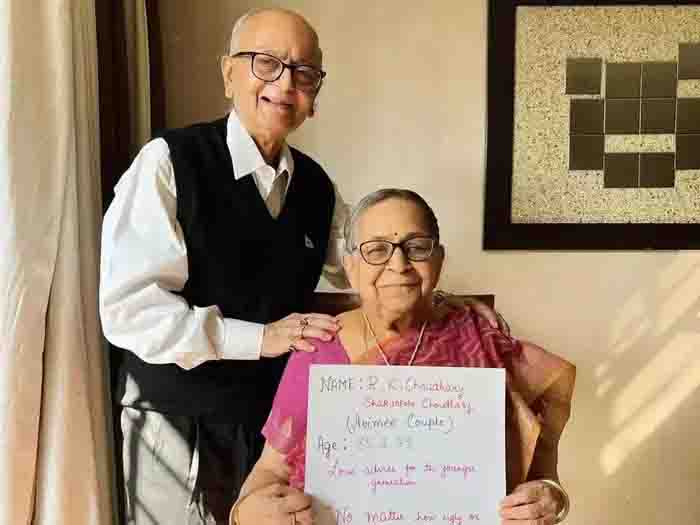 NAME: R. K. Choudhary
Choudhary
(Married Couple)
Age: &
Love advice for the younger
generation
No matter how ugly or